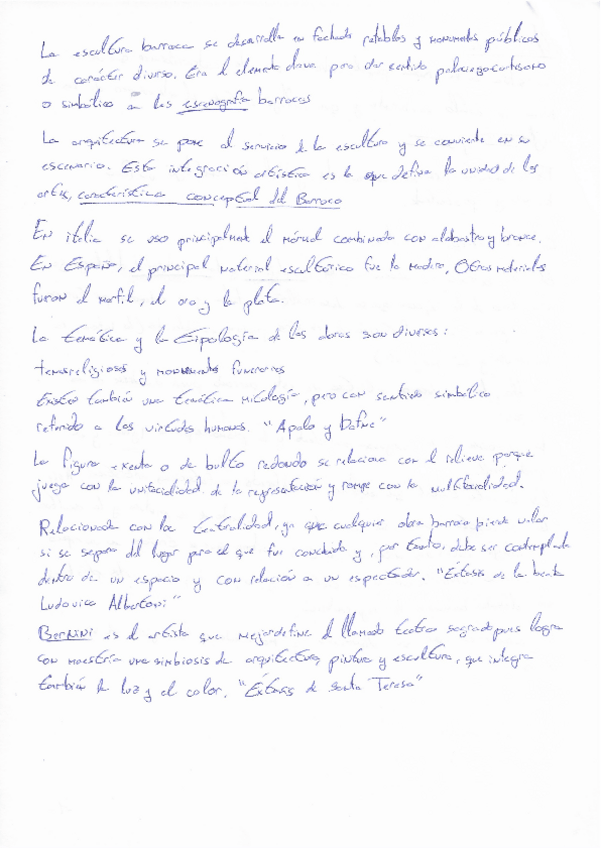 La escultura barroca se desarrolla en fachada retablos y monumentos públicos
de carácter diverso. Era el elemento clave para dar sentido
o simbólico en las escenografía barrocas
La arquitectura se pone al servicio de la escultura y se convierte en su
escenario. Esta integración artística es la que define la unidad de las
artes, característica conceptual del Barroco
En italia se uso principalmente el mármol combinado con alabastro y bronce.
En España, el principal material escultórico fue la madera, Otros materiales
fueron el marfil, el oro y la plata.
La temática y la tipología de las obras son diversos:
temas religiosos y monumentos funerarios
Existe también una temática mitología, pero con sentido simbólico
referido a las virtudes humanas. "Apolo y Dafne"
La figura exenta o de bulto redondo se relaciona con el relieve porque
juega con la unifacialidad de la representación y rompe con la multifacialidad.
Relacionada con la teatralidad, ya que cualquier obra barroca pierde valor
si se separa del lugar para el que fue concebida y, por tanto, debe ser contemplada
dentro de un espacio y con relación a un espectador. "Éxtasis de la beata
Ludovica Albertoni"
Bernini es el artista que mejor define el llamado teatro sagrado pues logra
con maestría una simbiosis de arquitectura, pintura y escultura, que integra
también la luz y el color. "Éxtasis de Santa Teresa"